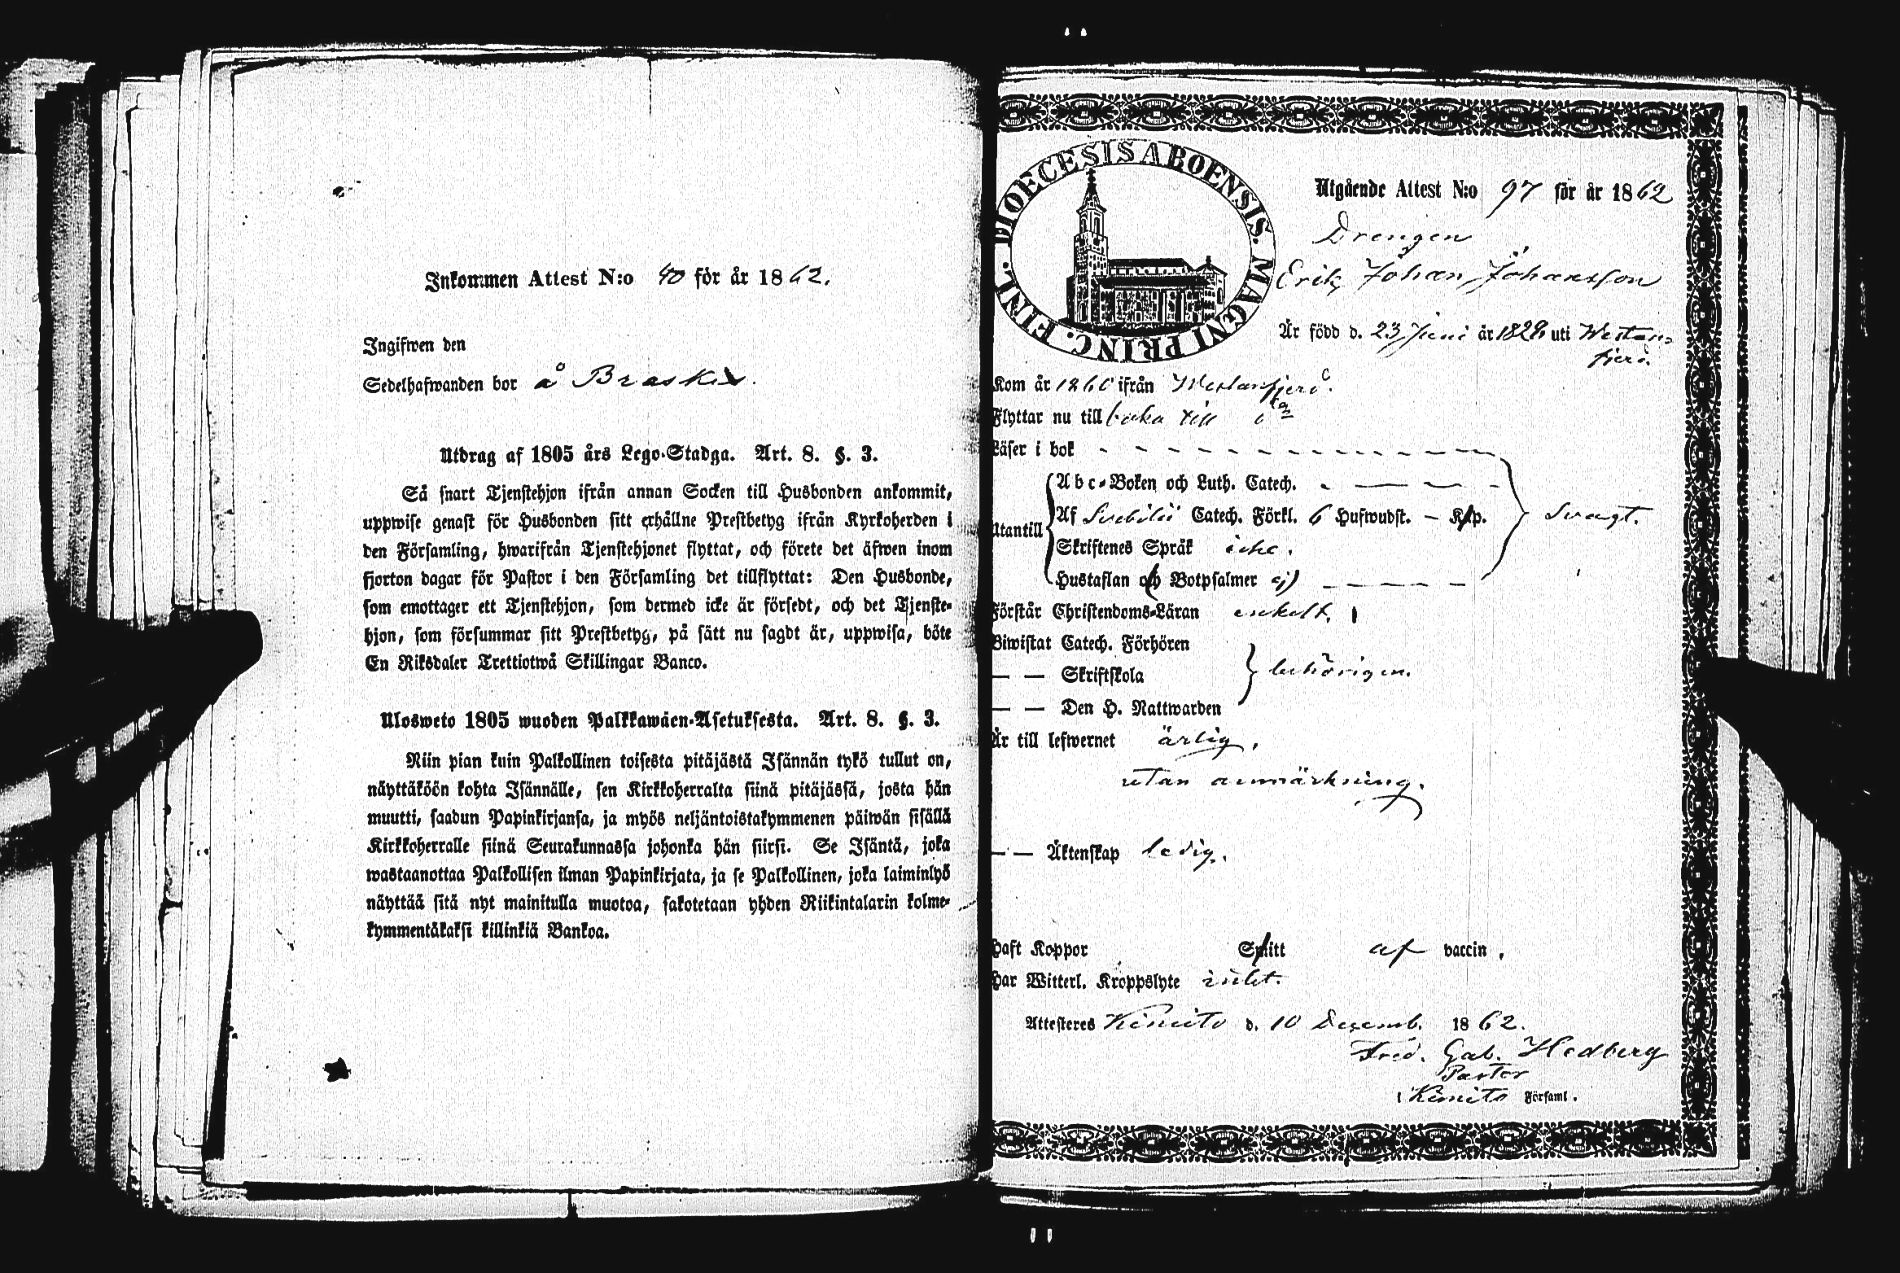 Inkommen Attest N:o 40 för år 1862.
Ingifwen den
Sedelhafwanden bor å Braskis.
Utdrag af 1805 års Lego-Stadga. Art. 8. §. 3.
Så snart Tjenstehjon ifrån annan Socken till Husbonden ankommit,
uppwise genast för Husbonden sitt erhållne Prestbetyg ifrån Kyrkoherden i
den Församling, hwarifrån Tjenstehjonet flyttat, och förete det äfwen inom
fjorton dagar för Pastor i den Församling det tillflyttat: Den Husbonde,
som emottager ett Tjenstehjon, som dermed icke är försedt, och det Tjenste-
hjon, som försummar sitt Prestbetyg, på sätt nu sagdt är, uppwisa, böte
En Riksdaler Trettiotwå Skillingar Banco.
Ulosweto 1805 wuoden Palkkawäen-Asetuksesta. Art. 8. §. 3.
Niin pian kuin Palkollinen toisesta pitäjästä Isännän tykö tullut on,
näyttäköön kohta Isännälle, sen Kirkkoherralta siinä pitäjässä, josta hän
muutti, saadun Papinkirjansa, ja myös neljäntoistakymmenen päiwän sisällä
Kirkkoherralle siinä Seurakunnassa johonka hän siirsi. Se Isäntä, joka
wastaanottaa Palkollisen ilman Papinkirjata, ja se Palkollinen, joka laiminlyö
näyttää sitä nyt mainitulla muotoa, sakotetaan yhden Riikintalarin kolme-
kymmentäkaksi killinkiä Bankoa.
DIOECESIS ABOENSIS. MAGNI PRINC. FINL.
Utgående Attest N:o 97 för år 1862
Drengen
Erik Johan Johansson
Är född d. 23 Juni år 1828 uti Westan-
fjerd.
Kom år 1860 ifrån Westanfjerd.
Flyttar nu till baka till
Läser i bok
Abc-Boken och Luth. Catech.
Utantill Af Svebilii Catech. Förkl. 6 Hufwudst. – Kap. Svagt.
Skriftenes Språk icke.
Hustaflan och Botpsalmer ej
Förstår Christendoms-Läran enkelt.
Biwistat Catech. Förhören
— — Skriftskola behörigen.
— — Den H. Nattwarden
Är till lefwernet ärlig,
utan anmärkning.
— — Äktenskap ledig.
Haft Koppor Smitt af vaccin,
Har Witterl. Kroppslyte intet.
Attesteres Kimito d. 10 Decemb. 1862.
Fred. Gab. Hedberg
Pastor
i Kimito Församl.